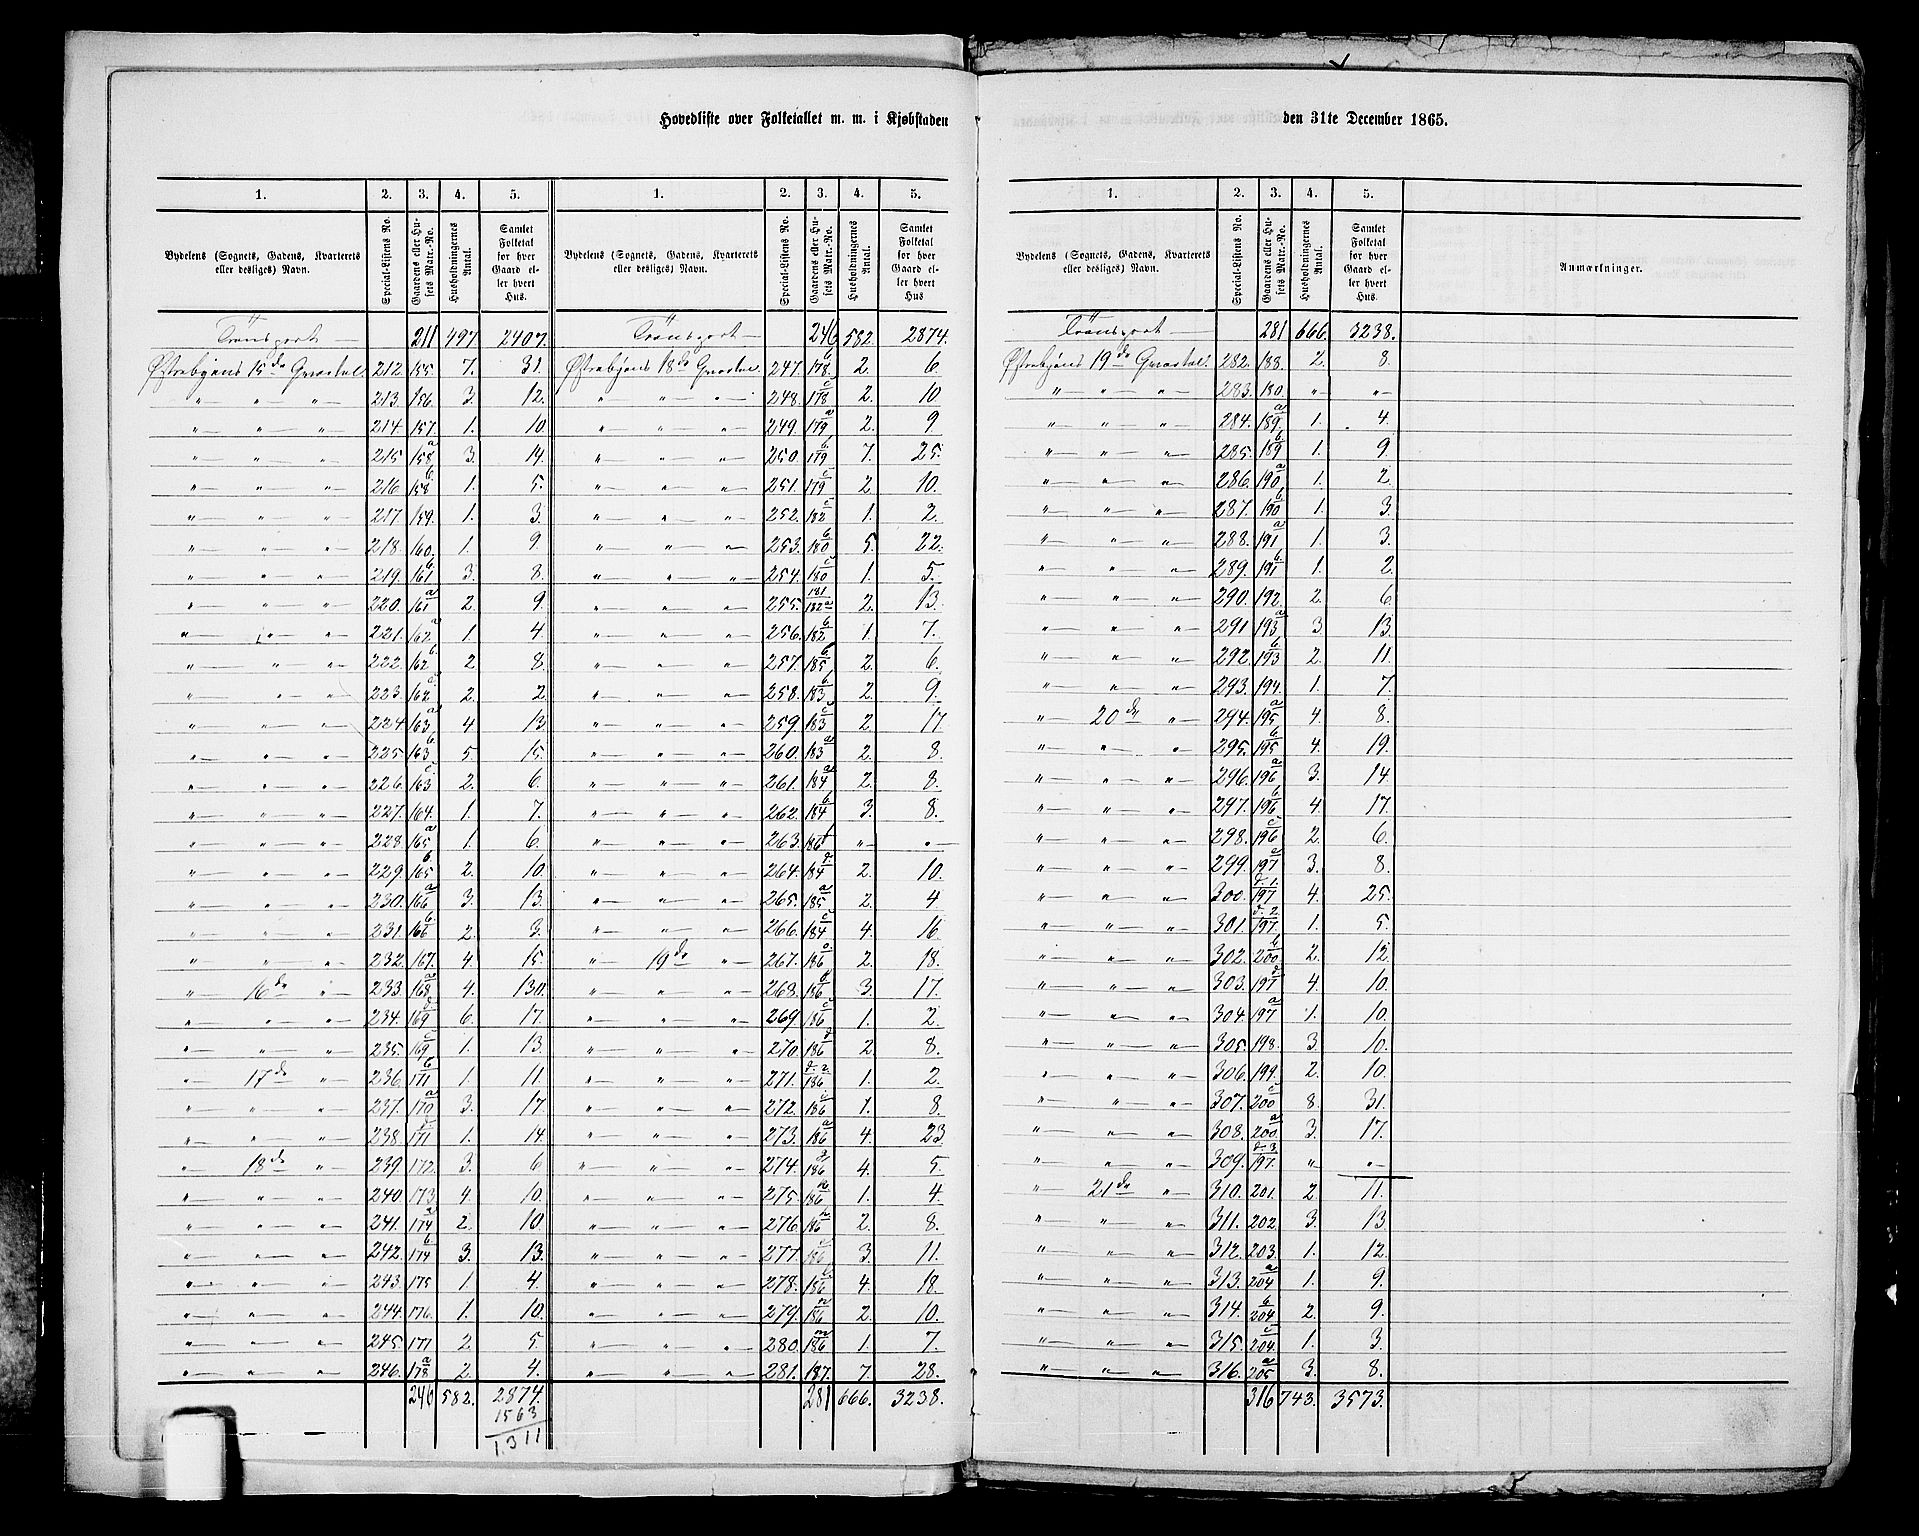 Hovedliste over Folketallet m. m. i Kjøbstaden den 31te December 1865.
1. 2. 3. 4. 5. 1. 2. 3. 4. 5.
Bydelens (Sognets, Gadens, Kvarterets eller desliges) Navn. Special-Listens No. Gaardens eller Husets Matr.-No. Husholdningernes Antal. Samlet Folketal for hver Gaard eller hvert Hus.
Bydelens (Sognets, Gadens, Kvarterets eller desliges) Navn. Special-Listens No. Gaardens eller Husets Matr.-No. Husholdningernes Antal. Samlet Folketal for hver Gaard eller hvert Hus
Transport — 211 497 2407.
Østrebyens 15de Qvartal. 212. 155. 7. 31.
„ „ „ 213. 156. 3. 12.
„ „ „ 214. 157. 1. 10
„ „ „ 215 158a 3. 14.
„ „ „ 216. 158b 1. 5.
„ „ „ 217 159. 1. 3.
„ „ „ 218. 160. 1. 9.
„ „ „ 219. 161b 3. 8.
„ „ „ 220. 161a 2. 9.
„ „ „ 221. 162a 1. 4.
„ „ „ 222. 162b 2 8.
„ „ „ 223. 162c 2. 2.
„ „ „ 224 163a 4 13.
„ „ „ 225. 163b 5 15.
„ „ „ 226. 163c 2. 6.
„ „ „ 227. 164. 1. 7.
„ „ „ 228. 165a 1. 6.
„ „ „ 229. 165b 2. 10.
„ „ „ 230. 166a 3. 13.
„ „ „ 231. 166b 2. 3.
„ „ „ 232. 167. 4. 15.
„ 16de „ 233. 168a 4. 130.
„ „ „ 234. 169d 6. 17.
„ „ „ 235. 169c 1. 13.
„ 17de „ 236. 171b 1. 11.
„ „ „ 237. 170a 3. 17.
„ „ „ 238. 171d 1. 14.
„ 18de „ 239. 172. 3. 6
„ „ „ 240. 173. 4. 10.
„ „ „ 241. 174a 2. 10
„ „ „ 242. 174b 3. 13.
„ „ „ 243. 175 1 4.
„ „ „ 244. 176. 1. 10.
„ „ „ 245. 177 2. 5.
„ „ „ 246. 178a 2. 4.
246 582. 2874.
1563
1311
Transport — 246 582. 2874.
Østrebyens 18de Qvartal. 247. 178b 2. 6.
„ „ „ 248. 178c 2. 10
„ „ „ 249. 179a 2. 9
„ „ „ 250. 179b 7. 25.
„ „ „ 251. 179c 2 10.
„ „ „ 252. 182c 1. 2.
„ „ „ 253. 180b 5. 22.
„ „ „ 254. 180c 1. 5.
„ „ „ 255. 181 182a 2. 13.
„ „ „ 256. 182b 1. 7.
„ „ „ 257. 185b 2. 6.
„ „ „ 258. 183b 2. 9.
„ „ „ 259. 183c 2 17.
„ „ „ 260. 183a 2. 8.
„ „ „ 261. 184a 2. 8.
„ „ „ 262. 184b 3. 8.
„ „ „ 263. 186f „ „
„ „ „ 264. 184d 2. 10.
„ „ „ 265. 185a 2. 4
„ „ „ 266. 184c 4. 16
„ 19de „ 267. 186o 2. 18.
„ „ „ 268. 186g 3. 17.
„ „ „ 269. 186c 1. 2.
„ „ „ 270. 186d 2 8.
„ „ „ 271. 186d.2. 1. 2.
„ „ „ 272. 186i 1. 8.
„ „ „ 273. 186a 4. 23
„ „ „ 274. 186 4. 5.
„ „ „ 275. 186k 1. 4.
„ „ „ 276. 186h 2. 8.
„ „ „ 277. 186 3. 11.
„ „ „ 278. 186b 4. 18.
„ „ „ 279. 186n 2. 10.
„ „ „ 280. 186m 1. 7.
„ „ „ 281. 187. 7. 28.
281 666. 3238.
1. 2. 3. 4. 5.
Bydelens (Sognets, Gadens, Kvarterets eller desliges) Navn. Special-Listens No. Gaardens eller Husets Matr.-No. Husholdningernes Antal. Samlet Folketal for hver Gaard eller hvert Hus. Anmærkninger.
Transport — 281 666. 3238.
Østrebyens 19de Qvartal. 282. 188. 2. 8.
„ „ „ 283. 180. „ „
„ „ „ 284. 189a 1. 4.
„ „ „ 285. 189b 1. 9.
„ „ „ 286. 190a 1. 2
„ „ „ 287. 190b 1. 3.
„ „ „ 288. 191a 1. 3.
„ „ „ 289. 191b 1. 2.
„ „ „ 290. 192. 2. 6
„ „ „ 291 193a 3. 13.
„ „ „ 292. 193b 2. 11.
„ „ „ 293. 194. 1. 7.
„ 20de „ 294. 195a 4. 8.
„ „ „ 295. 195b 4. 19.
„ „ „ 296. 196a 3. 14.
„ „ „ 297. 196b 4. 17.
„ „ „ 298. 196c 2. 6.
„ „ „ 299. 197c 3. 8.
„ „ „ 300. 197d.1. 4. 25.
„ „ „ 301. 197.d.2 1. 5.
„ „ „ 302. 200b 2. 12.
„ „ „ 303. 197d 4. 10.
„ „ „ 304. 197a 1. 10.
„ „ „ 305. 198. 3. 10.
„ „ „ 306. 199. 2. 10
„ „ „ 307. 200c 8. 31.
„ „ „ 308. 200a 3. 17.
„ „ „ 309. 197.d.3 „ „
„ 21de „ 310. 201. 2. 11.
„ „ „ 311. 202. 3. 13.
„ „ „ 312. 203. 1. 12.
„ „ „ 313. 204a 1. 9.
„ „ „ 314. 204b 2. 9.
„ „ „ 315. 204.c 1. 3.
„ „ „ 316. 205a 3. 8.
316 743. 3573.